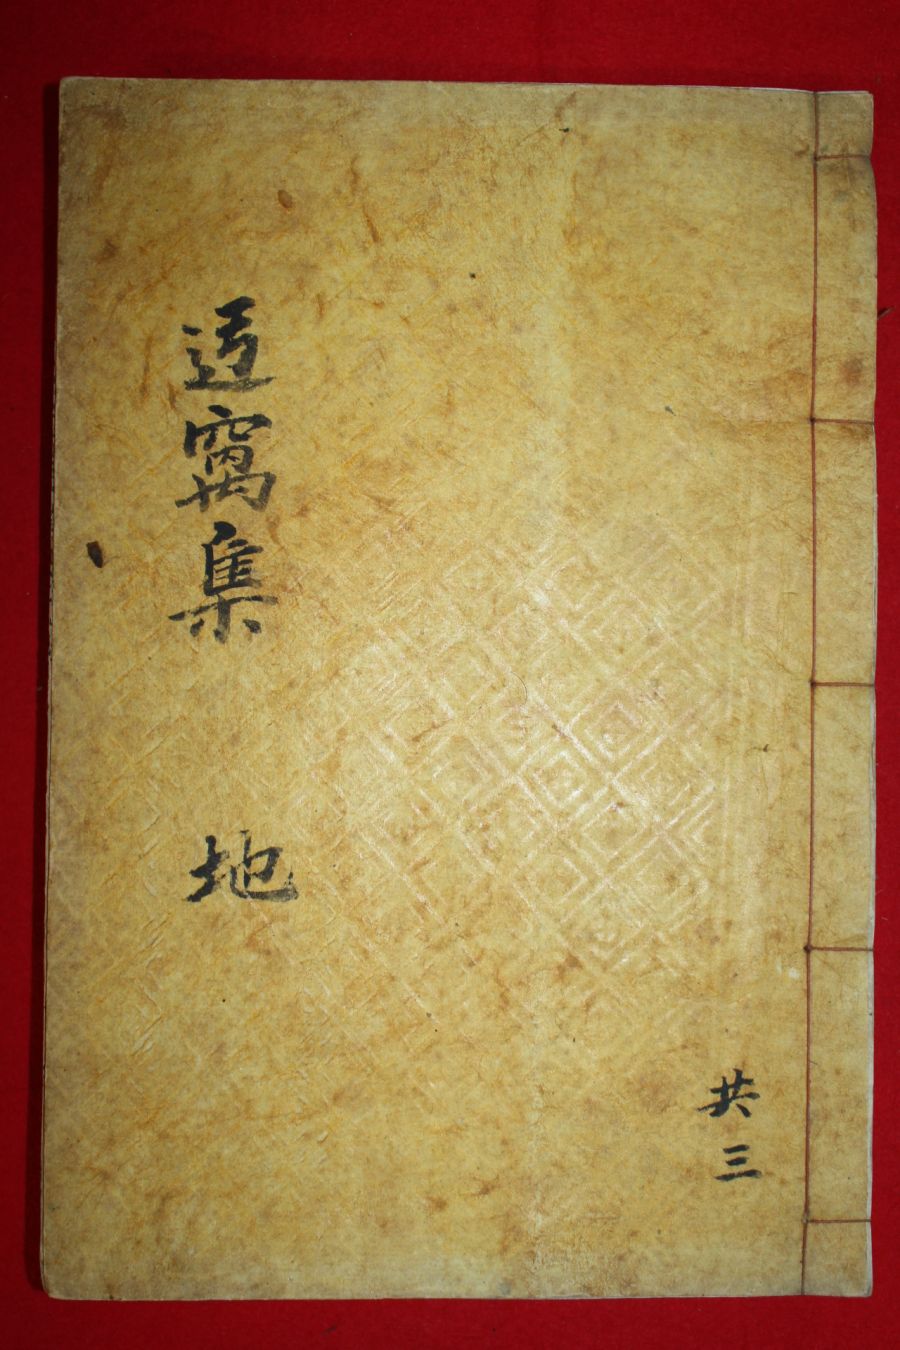 迃窩集 地
共三